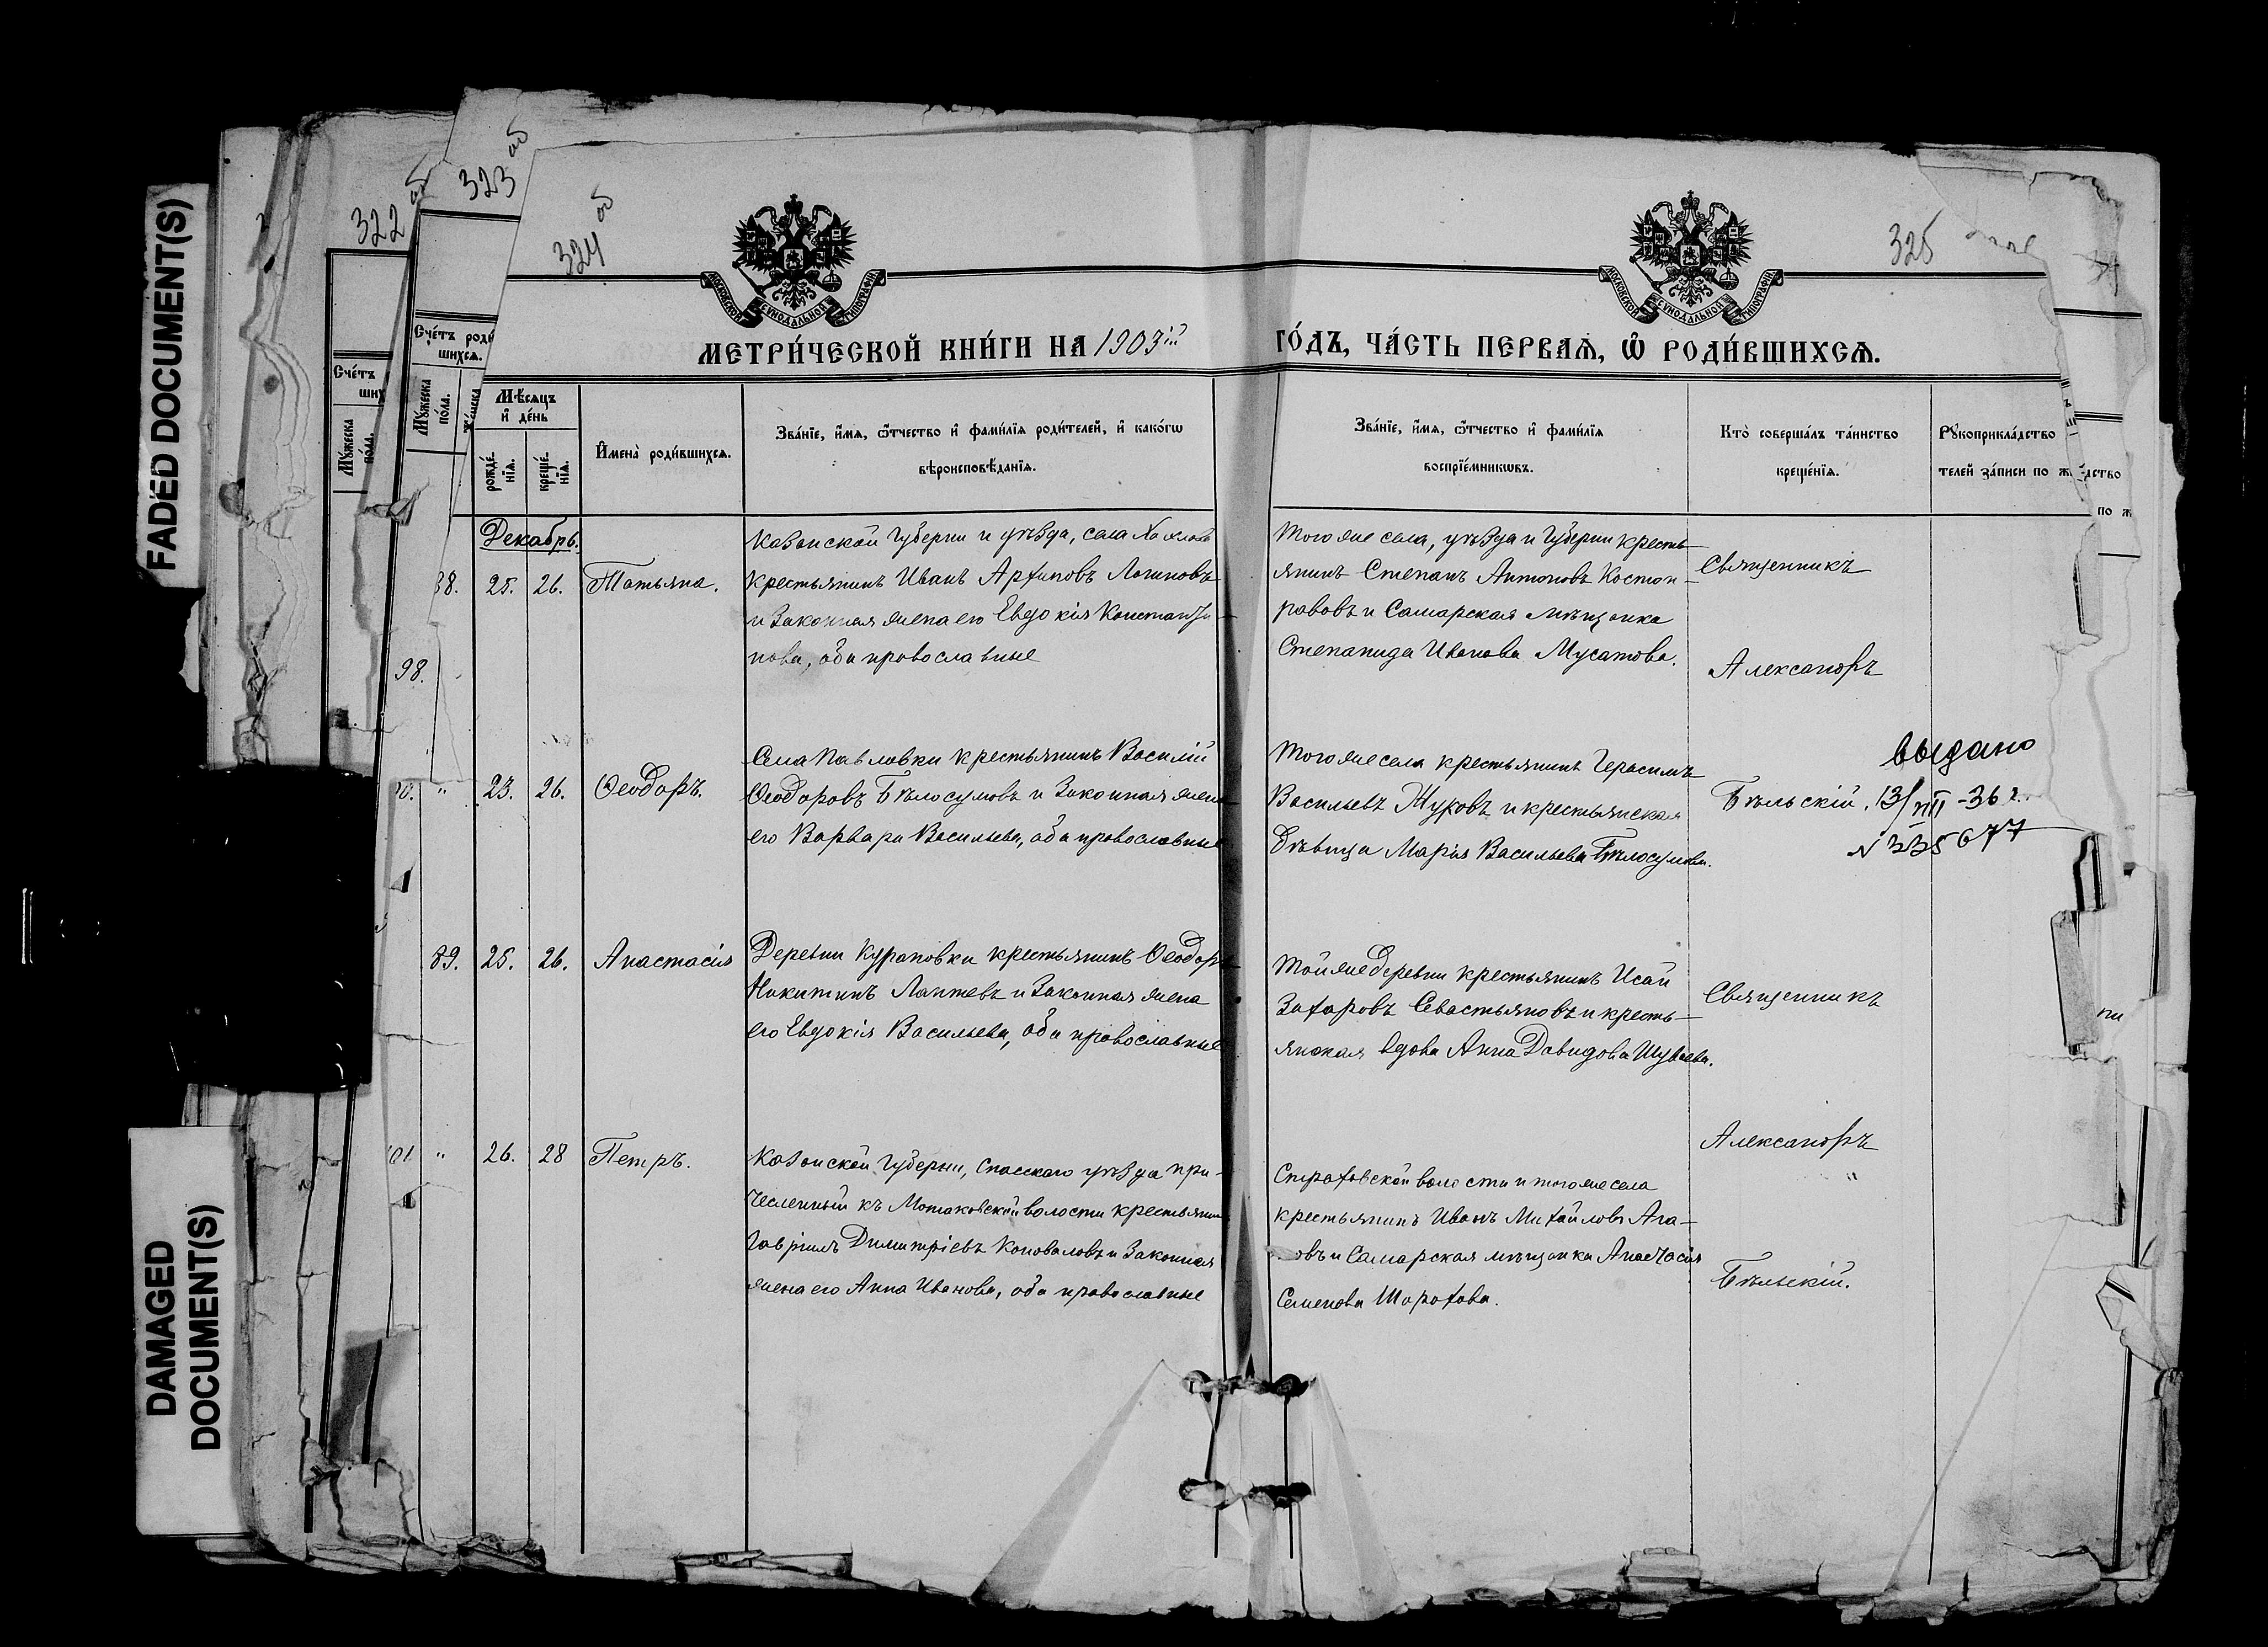 FADED DOCUMENT(S)
DAMAGED
DOCUMENT(S)
322 об
323 об
324 об
325
МОСКОВСКОЙ СѴНОДАЛЬНОЙ ТИПОГРАФІИ
МОСКОВСКОЙ СѴНОДАЛЬНОЙ ТИПОГРАФІИ
МЕТРИ́ЧЕСКОЙ КНИ́ГИ НА 1903ій
ГО́ДЪ, ЧА́СТЬ ПЕРВАѦ, Ѡ҆ РОДИ́ВШИХСѦ.
Сче́тъ
ших
Мꙋ́жеска
по́ла.
Сче́тъ роди
шихсѧ.
Мꙋ́жеска
по́ла.
Мѣ́сѧцъ
и҆ де́нь
рожде́-
нїѧ.
креще́-
нїѧ.
И҆мена̀ роди́вшихсѧ.
Зва́нїе, и҆́мѧ, ѻ҆́тчество и҆ фами́лїѧ роди́телей, и҆ како́гѡ
вѣроисповѣ́данїѧ.
Зва́нїе, и҆́мѧ, ѻ҆́тчество и҆ фами́лїѧ
воспрїе́мникѡвъ.
Кто̀ соверша́лъ та́инство
креще́нїѧ.
Рꙋкоприкла́дство
телей за́писи по ж
Декабрь.
38. 25. 26. Татьяна.
Казанской губерніи и уѣзда, села
крестьянинъ Иванъ Архиповъ Логиновъ
и законная жена его Евдокія Константи-
нова, оба православные
Того же села, уѣзда и губерніи кресть-
янинъ Степанъ Антоновъ Костоп-
равовъ и Самарская мѣщанка
Степанида Иванова Мусатова.
Священникъ
Александръ
98.
" 23. 26. Ѳеодоръ.
Села Павловки крестьянинъ Василій
Ѳеодоровъ Бѣлосумовъ и законная жена
его Варвара Васильева, оба православные
Того же села крестьянинъ Герасимъ
Васильевъ Жуковъ и крестьянская
дѣвица Марія Васильева Бѣлосумова.
Бѣльскій.
выдано
13/VIII-36 г.
N 335677
89. 25. 26. Анастасія
Деревни Курановки крестьянинъ Ѳеодоръ
Никитинъ Лаптевъ и законная жена
его Евдокія Васильева, оба православные
Той же деревни крестьянинъ Исай
Захаровъ Севастьяновъ и кресть-
янская вдова Анна Давидова Шуваева.
Священникъ
Александръ
"
101 " 26. 28 Петръ.
Казанской губерніи, Спасскаго уѣзда при-
численный къ Мотаковской волости крестьянинъ
Гавріилъ Димитріевъ Коноваловъ и законная
жена его Анна Иванова, оба православные
волости и того же села
крестьянинъ Иванъ Михайловъ Ага-
овъ и Самарская мѣщанка Анастасія
Семенова Шорохова.
Бѣльскій.